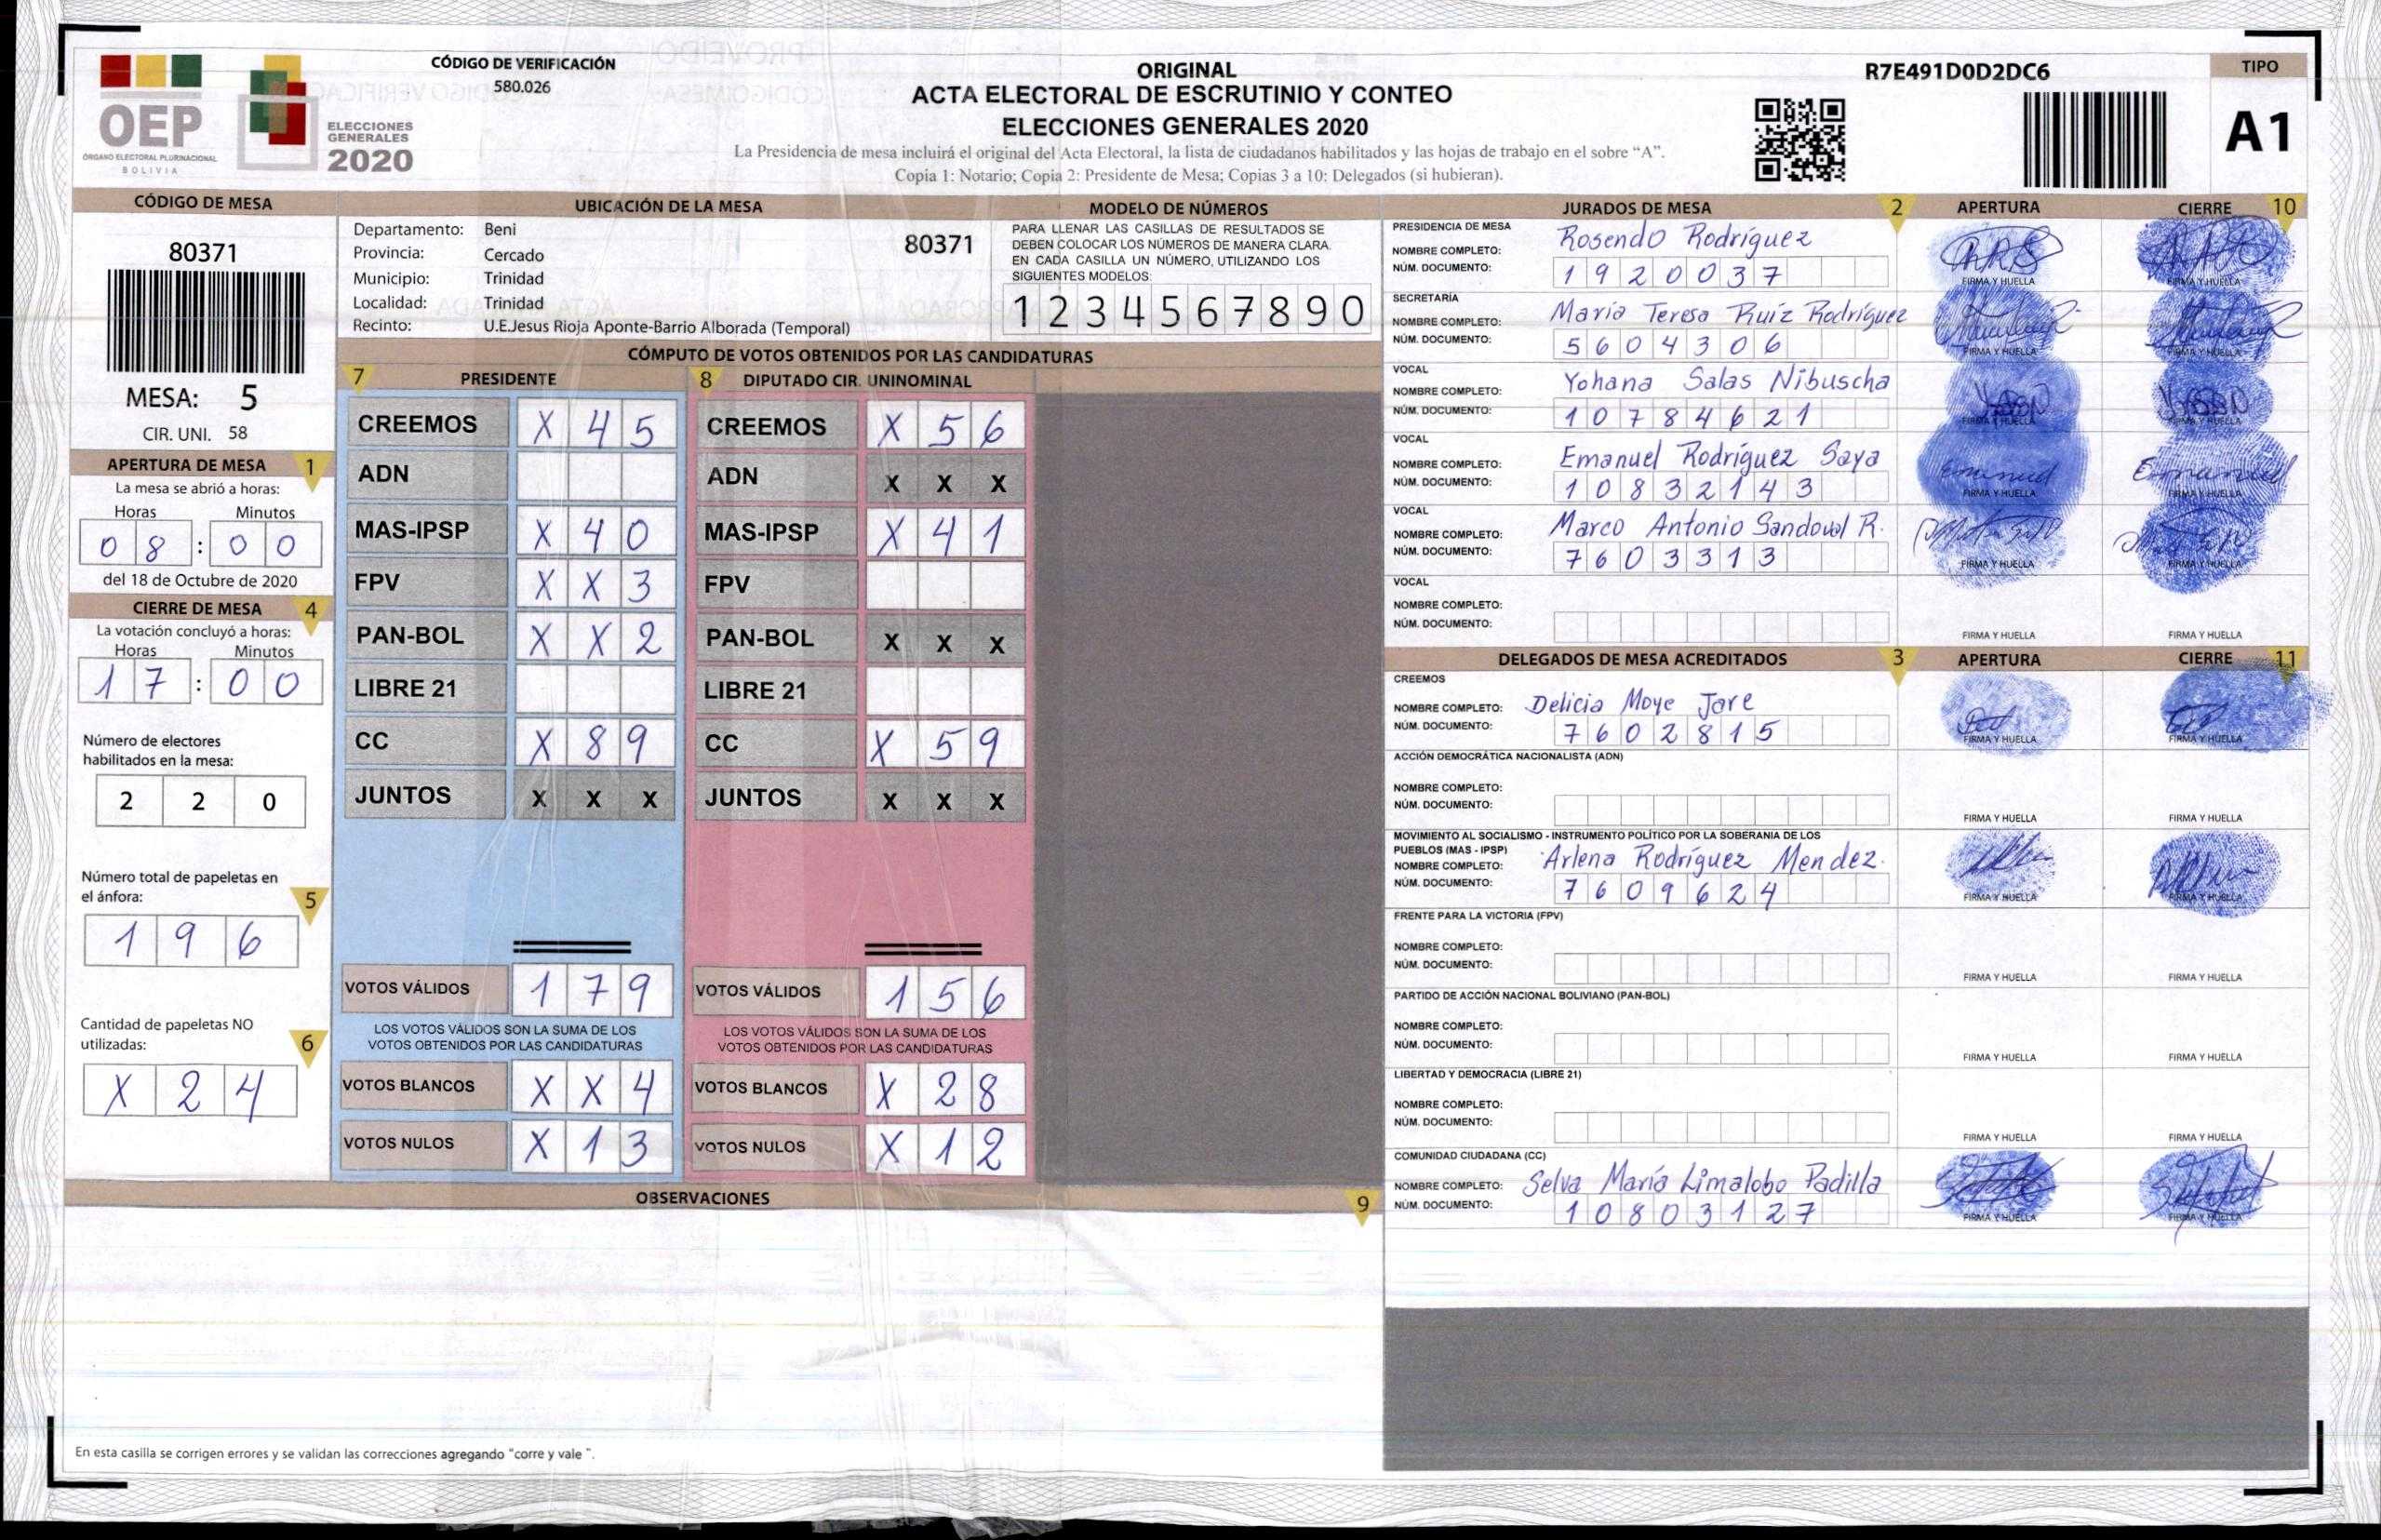 OEP
ÓRGANO ELECTORAL PLURINACIONAL
BOLIVIA
ELECCIONES
GENERALES
2020
CÓDIGO DE VERIFICACIÓN
580.026
ORIGINAL
ACTA ELECTORAL DE ESCRUTINIO Y CONTEO
ELECCIONES GENERALES 2020
La Presidencia de mesa incluirá el original del Acta Electoral, la lista de ciudadanos habilitados y las hojas de trabajo en el sobre “A”.
Copia 1: Notario; Copia 2: Presidente de Mesa; Copias 3 a 10: Delegados (si hubieran).
R7E491D0D2DC6
TIPO
A1
CÓDIGO DE MESA
80371
MESA: 5
CIR. UNI. 58
APERTURA DE MESA 1
La mesa se abrió a horas:
Horas Minutos
0 8 : 0 0
del 18 de Octubre de 2020
CIERRE DE MESA 4
La votación concluyó a horas:
Horas Minutos
1 7 : 0 0
Número de electores
habilitados en la mesa:
2 2 0
Número total de papeletas en
el ánfora: 5
1 9 6
Cantidad de papeletas NO
utilizadas: 6
X 2 4
UBICACIÓN DE LA MESA
Departamento: Beni
Provincia: Cercado
Municipio: Trinidad
Localidad: Trinidad
Recinto: U.E.Jesus Rioja Aponte-Barrio Alborada (Temporal)
80371
MODELO DE NÚMEROS
PARA LLENAR LAS CASILLAS DE RESULTADOS SE
DEBEN COLOCAR LOS NÚMEROS DE MANERA CLARA.
EN CADA CASILLA UN NÚMERO, UTILIZANDO LOS
SIGUIENTES MODELOS:
1 2 3 4 5 6 7 8 9 0
CÓMPUTO DE VOTOS OBTENIDOS POR LAS CANDIDATURAS
7 PRESIDENTE
CREEMOS X 4 5
ADN
MAS-IPSP X 4 0
FPV X X 3
PAN-BOL X X 2
LIBRE 21
CC X 8 9
JUNTOS X X X
VOTOS VÁLIDOS 1 7 9
LOS VOTOS VÁLIDOS SON LA SUMA DE LOS
VOTOS OBTENIDOS POR LAS CANDIDATURAS
VOTOS BLANCOS X X 4
VOTOS NULOS X 1 3
8 DIPUTADO CIR. UNINOMINAL
CREEMOS X 5 6
ADN X X X
MAS-IPSP X 4 1
FPV
PAN-BOL X X X
LIBRE 21
CC X 5 9
JUNTOS X X X
VOTOS VÁLIDOS 1 5 6
LOS VOTOS VÁLIDOS SON LA SUMA DE LOS
VOTOS OBTENIDOS POR LAS CANDIDATURAS
VOTOS BLANCOS X 2 8
VOTOS NULOS X 1 2
OBSERVACIONES 9
En esta casilla se corrigen errores y se validan las correcciones agregando "corre y vale ".
JURADOS DE MESA 2 APERTURA CIERRE 10
PRESIDENCIA DE MESA
NOMBRE COMPLETO: Rosendo Rodríguez
NÚM. DOCUMENTO: 1 9 2 0 0 3 7
FIRMA Y HUELLA FIRMA Y HUELLA
SECRETARÍA
NOMBRE COMPLETO: María Teresa Ruiz Rodríguez
NÚM. DOCUMENTO: 5 6 0 4 3 0 6
FIRMA Y HUELLA FIRMA Y HUELLA
VOCAL
NOMBRE COMPLETO: Yohana Salas Nibuscha
NÚM. DOCUMENTO: 1 0 7 8 4 6 2 1
FIRMA Y HUELLA FIRMA Y HUELLA
VOCAL
NOMBRE COMPLETO: Emanuel Rodríguez Saya
NÚM. DOCUMENTO: 1 0 8 3 2 1 4 3
Emanuel Emanuel
FIRMA Y HUELLA FIRMA Y HUELLA
VOCAL
NOMBRE COMPLETO: Marco Antonio Sandoval R.
NÚM. DOCUMENTO: 7 6 0 3 3 1 3
FIRMA Y HUELLA FIRMA Y HUELLA
VOCAL
NOMBRE COMPLETO:
NÚM. DOCUMENTO:
FIRMA Y HUELLA FIRMA Y HUELLA
DELEGADOS DE MESA ACREDITADOS 3 APERTURA CIERRE 11
CREEMOS
NOMBRE COMPLETO: Delicia Moye Jare
NÚM. DOCUMENTO: 7 6 0 2 8 1 5
FIRMA Y HUELLA FIRMA Y HUELLA
ACCIÓN DEMOCRÁTICA NACIONALISTA (ADN)
NOMBRE COMPLETO:
NÚM. DOCUMENTO:
FIRMA Y HUELLA FIRMA Y HUELLA
MOVIMIENTO AL SOCIALISMO - INSTRUMENTO POLÍTICO POR LA SOBERANIA DE LOS
PUEBLOS (MAS - IPSP)
NOMBRE COMPLETO: Arlena Rodríguez Mendez.
NÚM. DOCUMENTO: 7 6 0 9 6 2 4
FIRMA Y HUELLA FIRMA Y HUELLA
FRENTE PARA LA VICTORIA (FPV)
NOMBRE COMPLETO:
NÚM. DOCUMENTO:
FIRMA Y HUELLA FIRMA Y HUELLA
PARTIDO DE ACCIÓN NACIONAL BOLIVIANO (PAN-BOL)
NOMBRE COMPLETO:
NÚM. DOCUMENTO:
FIRMA Y HUELLA FIRMA Y HUELLA
LIBERTAD Y DEMOCRACIA (LIBRE 21)
NOMBRE COMPLETO:
NÚM. DOCUMENTO:
FIRMA Y HUELLA FIRMA Y HUELLA
COMUNIDAD CIUDADANA (CC)
NOMBRE COMPLETO: Selva María Limalobo Padilla
NÚM. DOCUMENTO: 1 0 8 0 3 1 2 7
FIRMA Y HUELLA FIRMA Y HUELLA